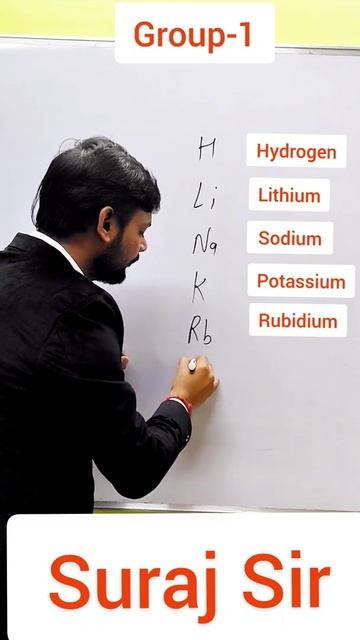 Group-1
H Hydrogen
Li Lithium
Na Sodium
K Potassium
Rb Rubidium
Suraj Sir